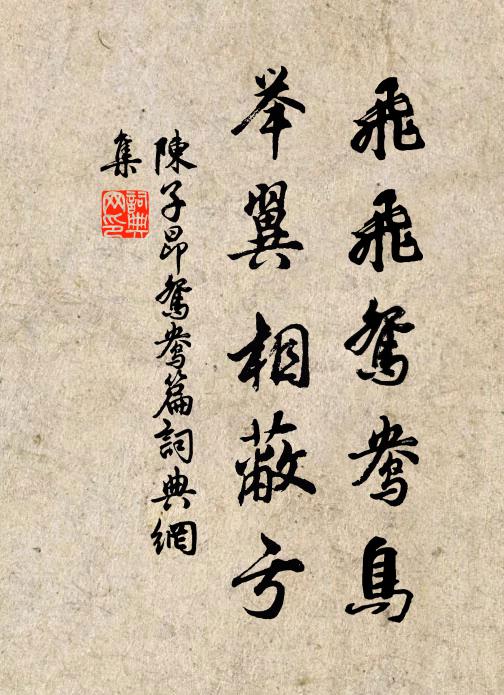 飛飛鴛鴦鳥
举翼相蔽亏
陳子昂鴛鴦篇詞典網
集
詞典网印